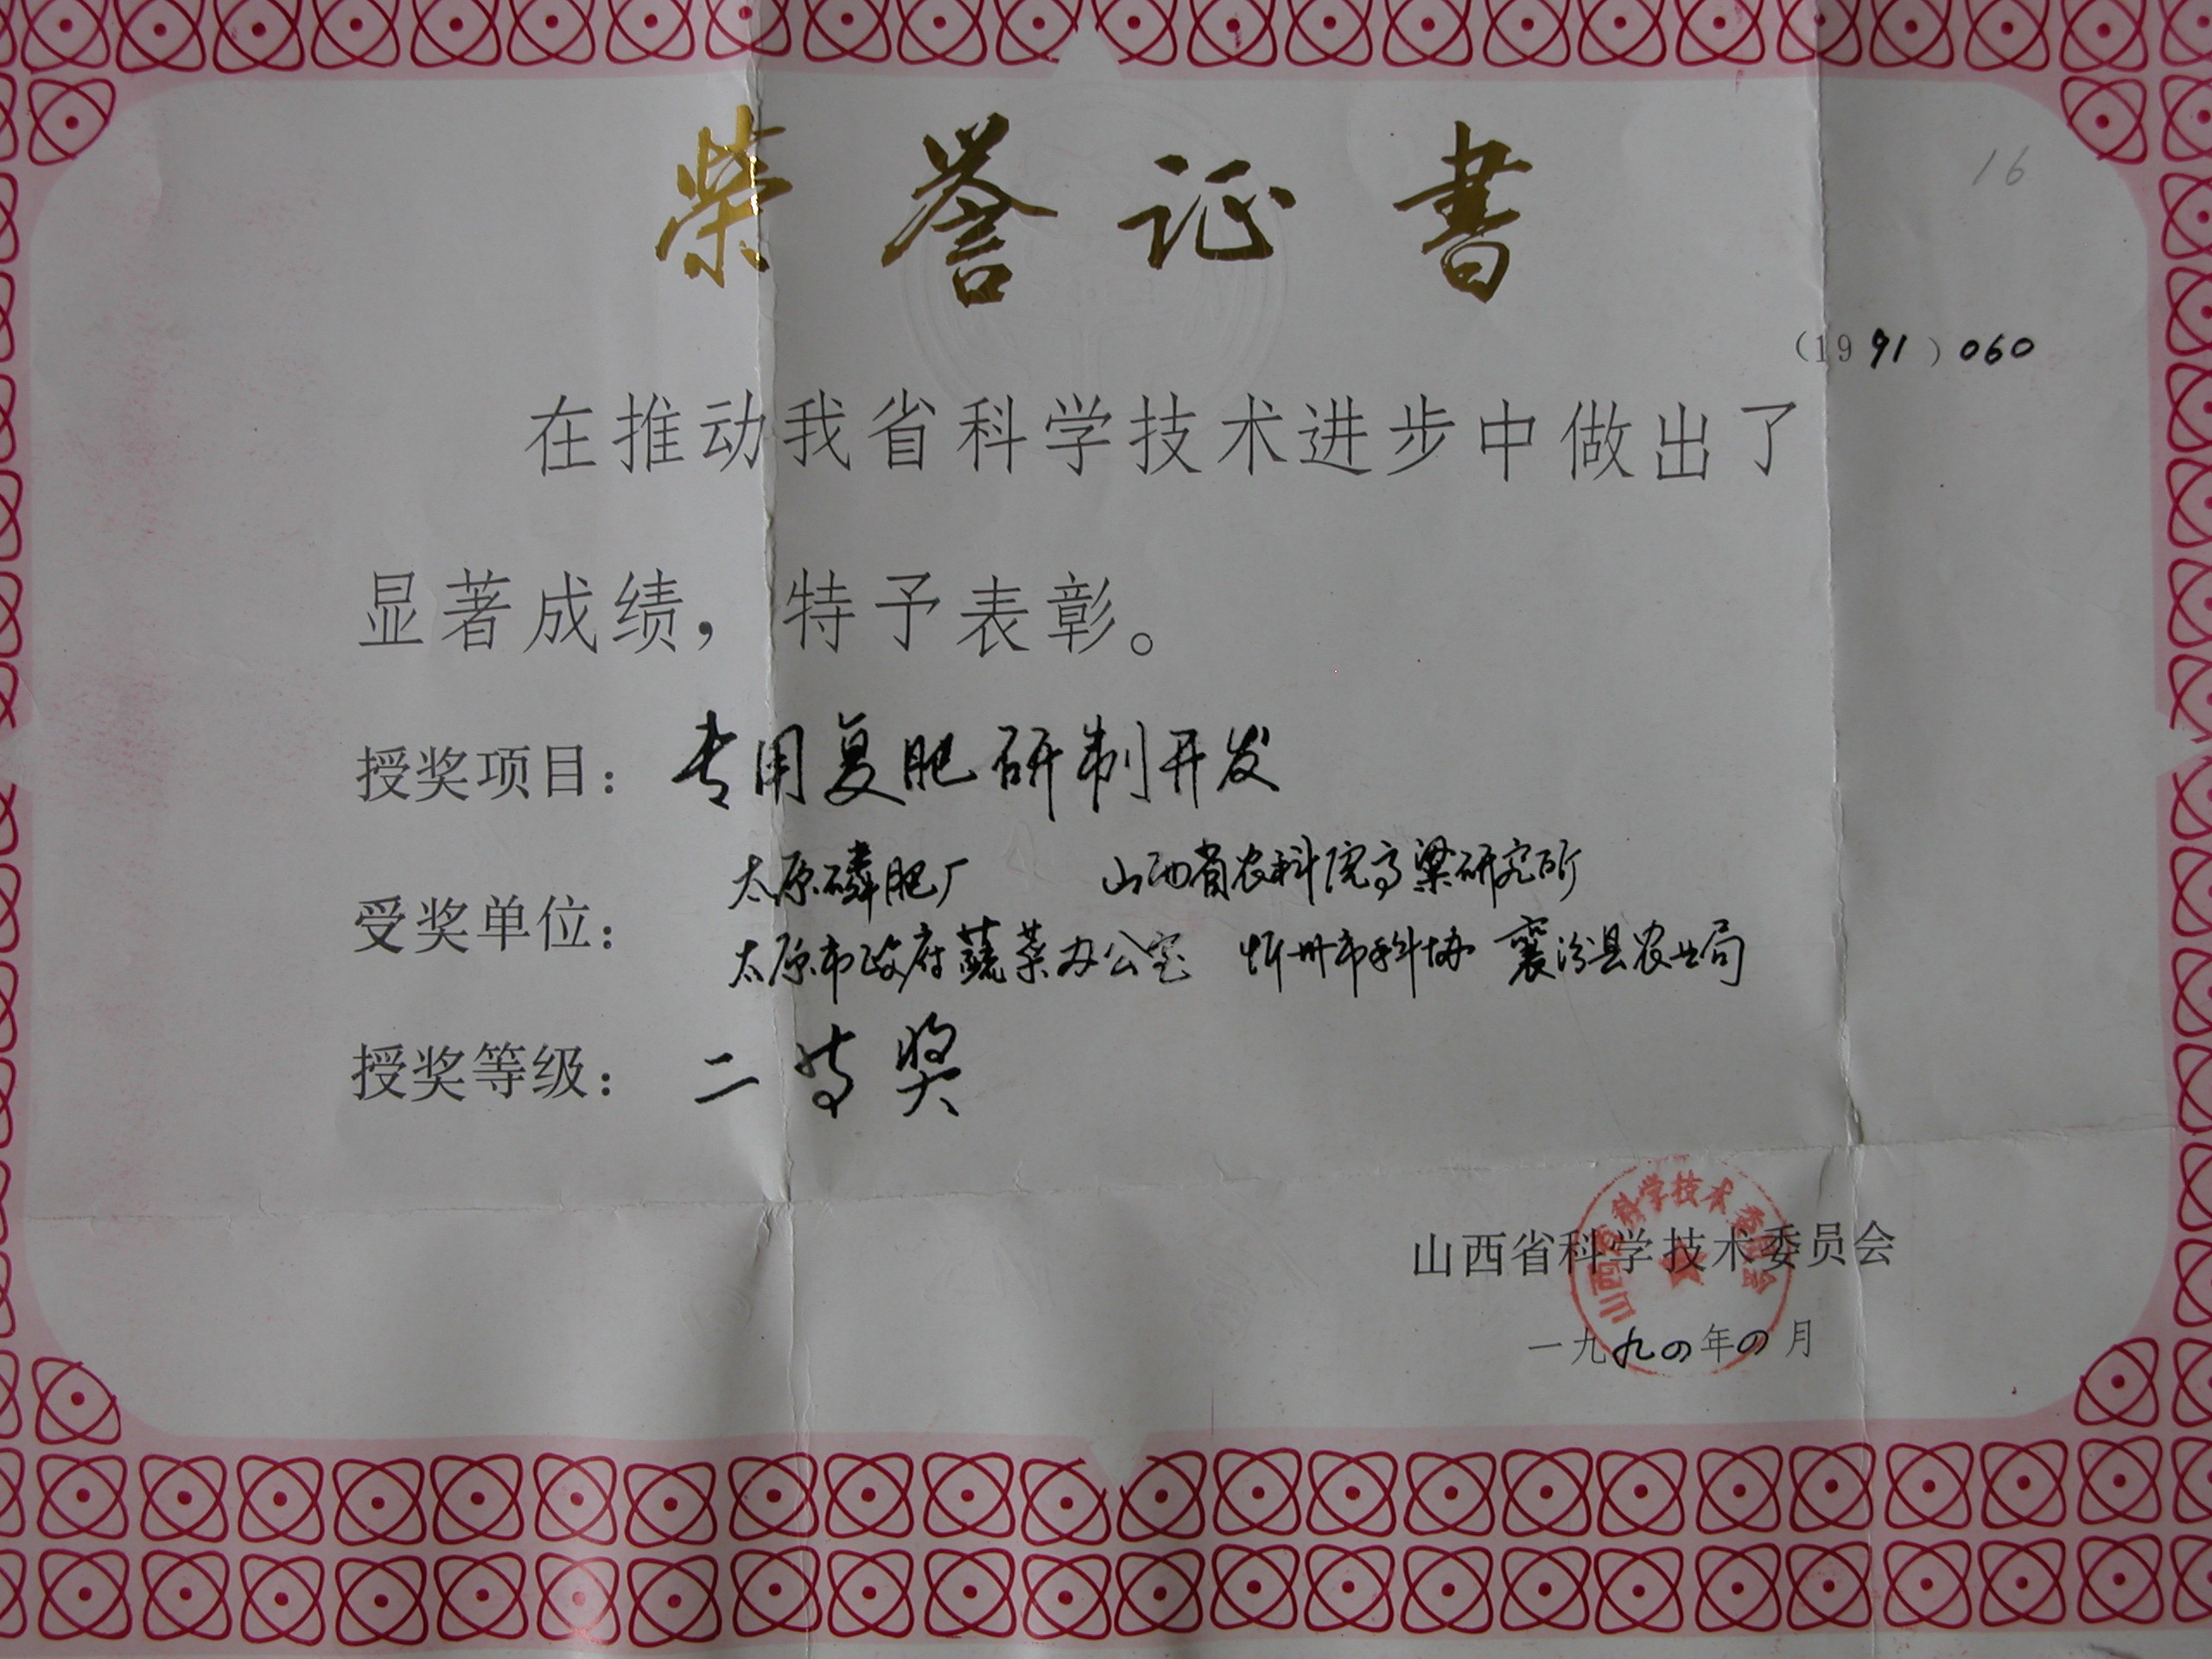 荣誉证书
16
（1991）060
在推动我省科学技术进步中做出了
显著成绩，特予表彰。
授奖项目：专用复肥研制开发
受奖单位：
太原磷肥厂 山西省农科院高粱研究所
太原市政府蔬菜办公室 忻州市科协 襄汾县农业局
授奖等级：二等奖
山西省科学技术委员会
山西省科学技术委员会
一九九四年四月